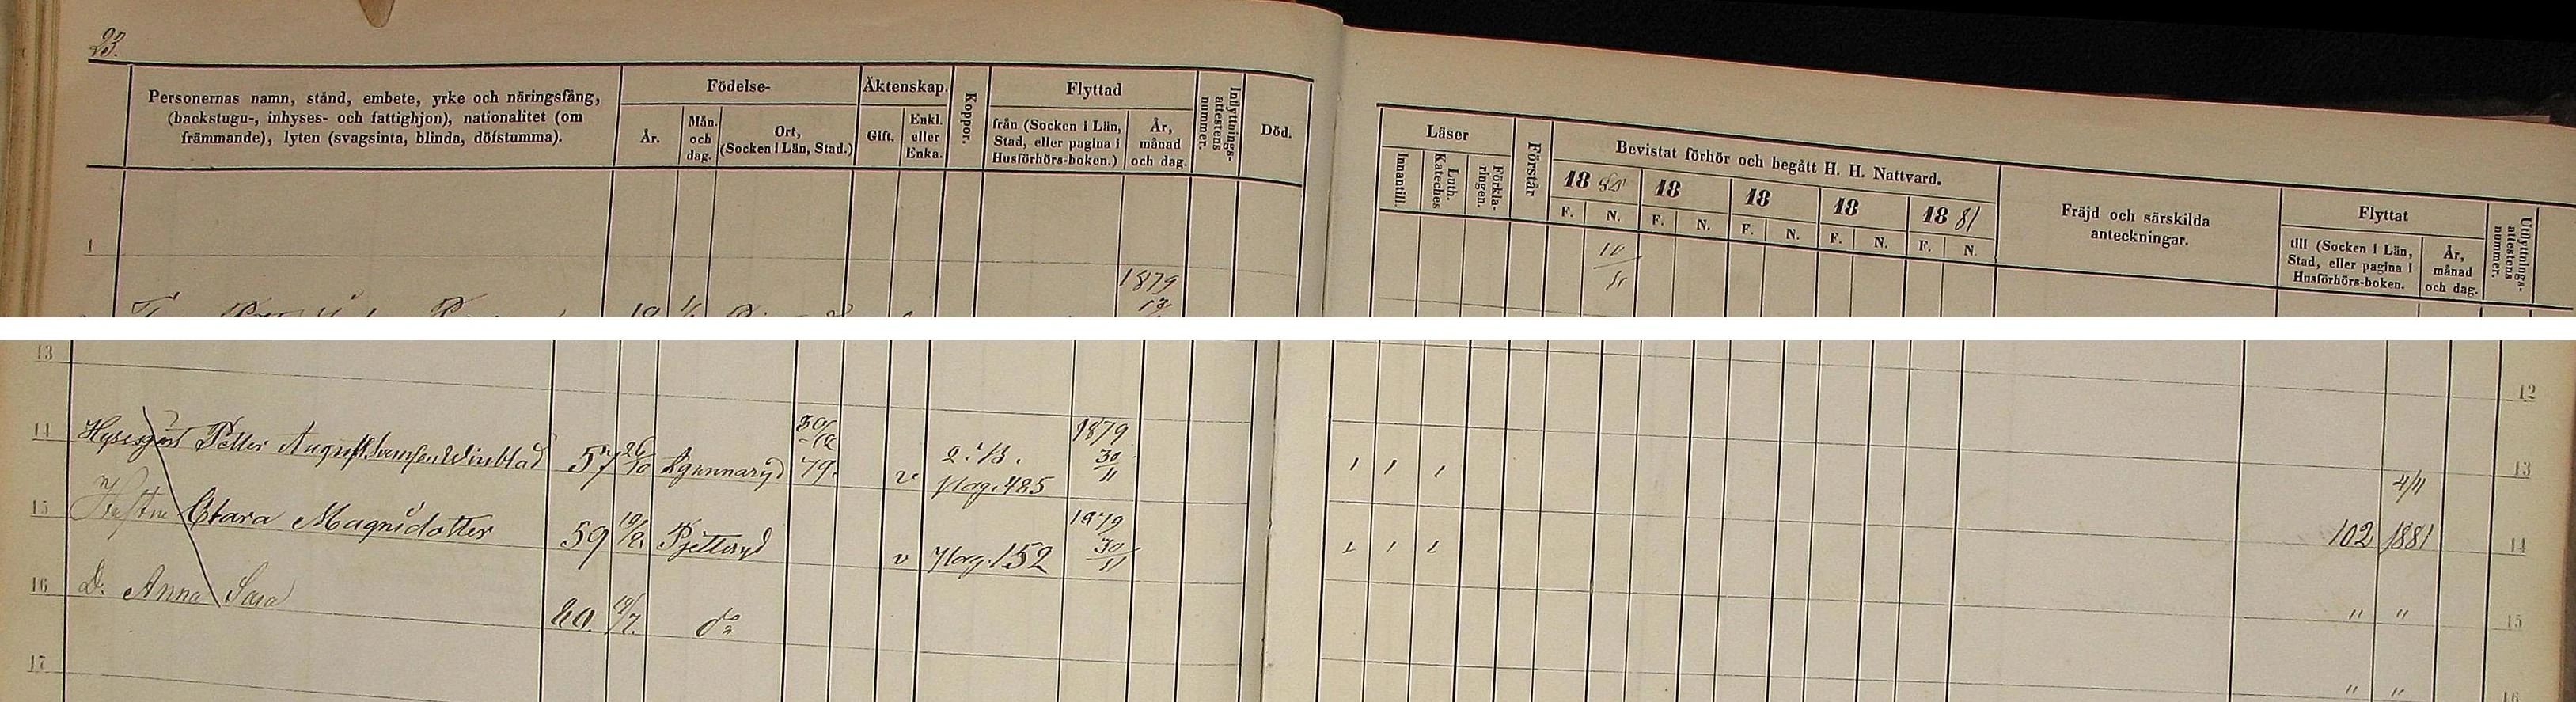 23.
Personernas namn, stånd, embete, yrke och näringsfång,
(backstugu-, inhyses- och fattighjon), nationalitet (om
främmande), lyten (svagsinta, blinda, döfstumma).
Födelse-
År.
Mån.
och
dag.
Ort,
(Socken i Län, Stad.)
Äktenskap.
Gift.
Enkl.
eller
Enka.
Koppor.
Flyttad
från (Socken i Län,
Stad, eller pagina i
Husförhörs-boken.)
År,
månad
och dag.
Inflyttnings-
attestens
nummer.
Död.
Läser
Innantill.
Luth.
Kateches
Förkla-
ringen.
Förstår
Bevistat förhör och begått H. H. Nattvard.
18 80 18 18 18 18 81
F. N. F. N. F. N. F. N. F. N.
Fräjd och särskilda
anteckningar.
Flyttat
till (Socken i Län,
Stad, eller pagina i
Husförhörs-boken.
År,
månad
och dag.
Utflyttnings-
attestens
nummer.
1
1879
10
11
13
12
14 Petter August Svensson Winblad 57 26/10 Agunnaryd 30/12 79. v pag. 485 1879 30/11 1 1 1 13
4/11
15 Hustru Clara Magnidotter 59 Pjetteryd v pag. 152 1879 30/11 1 1 1 102 1881 14
16 D. Anna Sara 80. do " " 15
17 " " 16